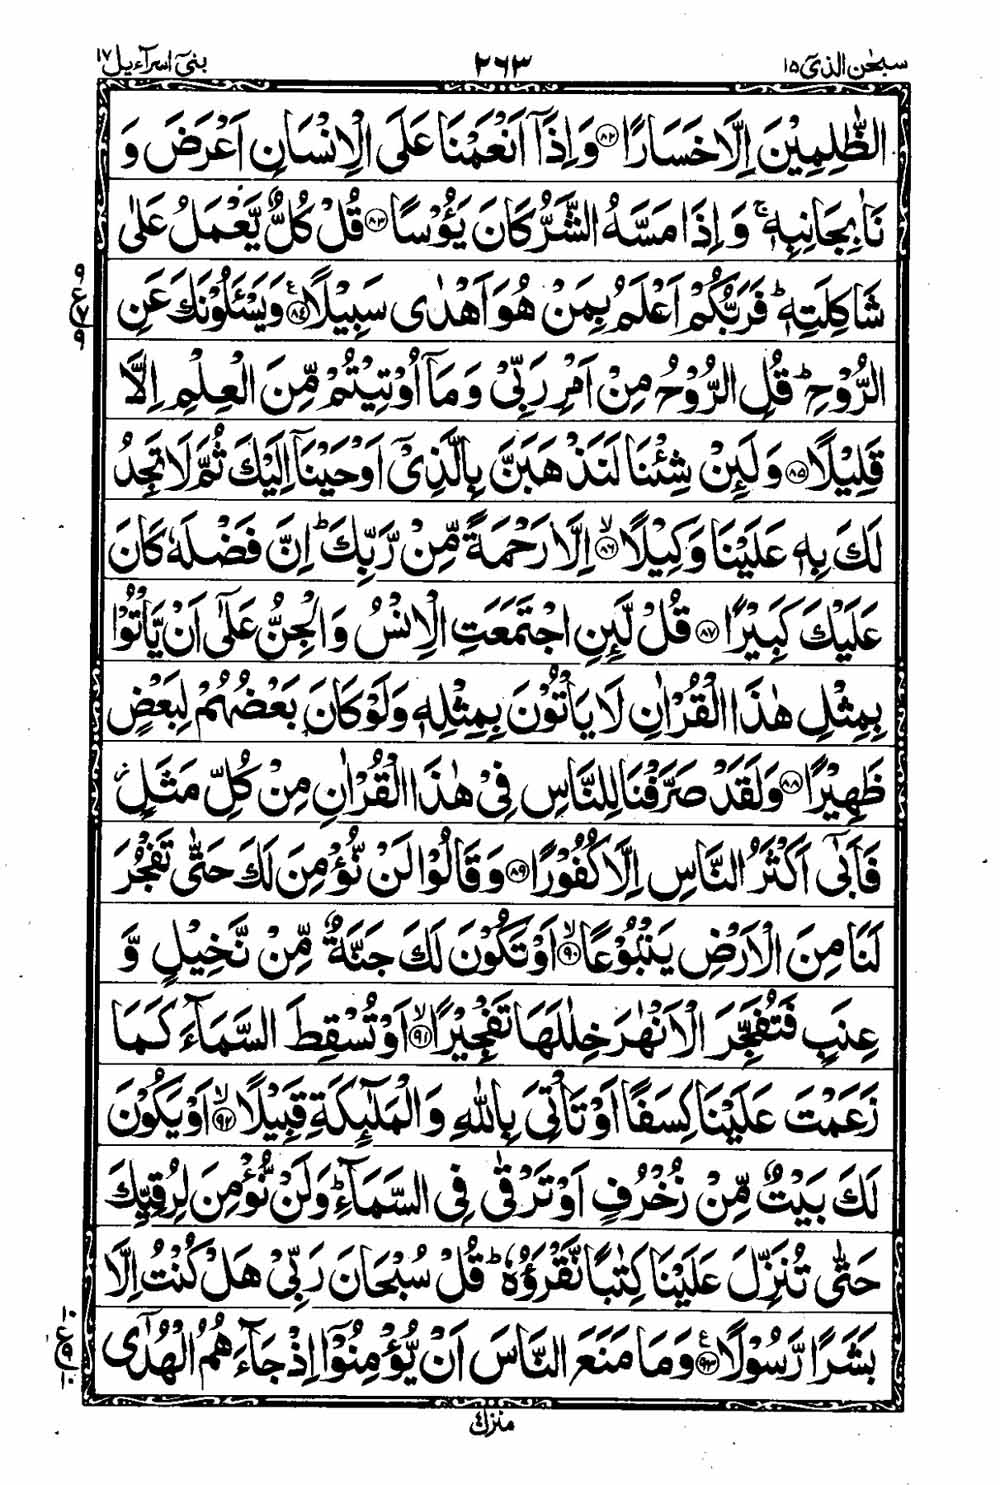 سبحٰن الذی ١٥ ٢٦٣ بنیٓ اسرآءیل ١٧
الظّٰلِمِیْنَ اِلَّا خَسَارًا ﴿٨٢﴾ وَ اِذَاۤ اَنْعَمْنَا عَلَی الْاِنْسَانِ اَعْرَضَ وَ
نَاٰ بِجَانِبِهٖ ۚ وَ اِذَا مَسَّهُ الشَّرُّ كَانَ یَـُٔوْسًا ﴿٨٣﴾ قُلْ كُلٌّ یَّعْمَلُ عَلٰی
شَاكِلَتِهٖ ؕ فَرَبُّكُمْ اَعْلَمُ بِمَنْ هُوَ اَهْدٰی سَبِیْلًا ﴿٨٤﴾ ع وَ یَسْـَٔلُوْنَكَ عَنِ
الرُّوْحِ ؕ قُلِ الرُّوْحُ مِنْ اَمْرِ رَبِّیْ وَ مَاۤ اُوْتِیْتُمْ مِّنَ الْعِلْمِ اِلَّا
قَلِیْلًا ﴿٨٥﴾ وَ لَىِٕنْ شِئْنَا لَنَذْهَبَنَّ بِالَّذِیْۤ اَوْحَیْنَاۤ اِلَیْكَ ثُمَّ لَا تَجِدُ
لَكَ بِهٖ عَلَیْنَا وَكِیْلًا ﴿٨٦﴾ ۙ اِلَّا رَحْمَةً مِّنْ رَّبِّكَ ؕ اِنَّ فَضْلَهٗ كَانَ
عَلَیْكَ كَبِیْرًا ﴿٨٧﴾ قُلْ لَّىِٕنِ اجْتَمَعَتِ الْاِنْسُ وَ الْجِنُّ عَلٰۤی اَنْ یَّاْتُوْا
بِمِثْلِ هٰذَا الْقُرْاٰنِ لَا یَاْتُوْنَ بِمِثْلِهٖ وَ لَوْ كَانَ بَعْضُهُمْ لِبَعْضٍ
ظَهِیْرًا ﴿٨٨﴾ وَ لَقَدْ صَرَّفْنَا لِلنَّاسِ فِیْ هٰذَا الْقُرْاٰنِ مِنْ كُلِّ مَثَلٍ ؗ
فَاَبٰۤی اَكْثَرُ النَّاسِ اِلَّا كُفُوْرًا ﴿٨٩﴾ وَ قَالُوْا لَنْ نُّؤْمِنَ لَكَ حَتّٰی تَفْجُرَ
لَنَا مِنَ الْاَرْضِ یَنْۢبُوْعًا ﴿٩٠﴾ ۙ اَوْ تَكُوْنَ لَكَ جَنَّةٌ مِّنْ نَّخِیْلٍ وَّ
عِنَبٍ فَتُفَجِّرَ الْاَنْهٰرَ خِلٰلَهَا تَفْجِیْرًا ﴿٩١﴾ ۙ اَوْ تُسْقِطَ السَّمَآءَ كَمَا
زَعَمْتَ عَلَیْنَا كِسَفًا اَوْ تَاْتِیَ بِاللّٰهِ وَ الْمَلٰٓىِٕكَةِ قَبِیْلًا ﴿٩٢﴾ ۙ اَوْ یَكُوْنَ
لَكَ بَیْتٌ مِّنْ زُخْرُفٍ اَوْ تَرْقٰی فِی السَّمَآءِ ؕ وَ لَنْ نُّؤْمِنَ لِرُقِیِّكَ
حَتّٰی تُنَزِّلَ عَلَیْنَا كِتٰبًا نَّقْرَؤُهٗ ؕ قُلْ سُبْحَانَ رَبِّیْ هَلْ كُنْتُ اِلَّا
بَشَرًا رَّسُوْلًا ﴿٩٣﴾ ع وَ مَا مَنَعَ النَّاسَ اَنْ یُّؤْمِنُوْۤا اِذْ جَآءَهُمُ الْهُدٰۤی
٩ ع ٧ ٩
١٠ ع ٩ ١٠
منزل ٤